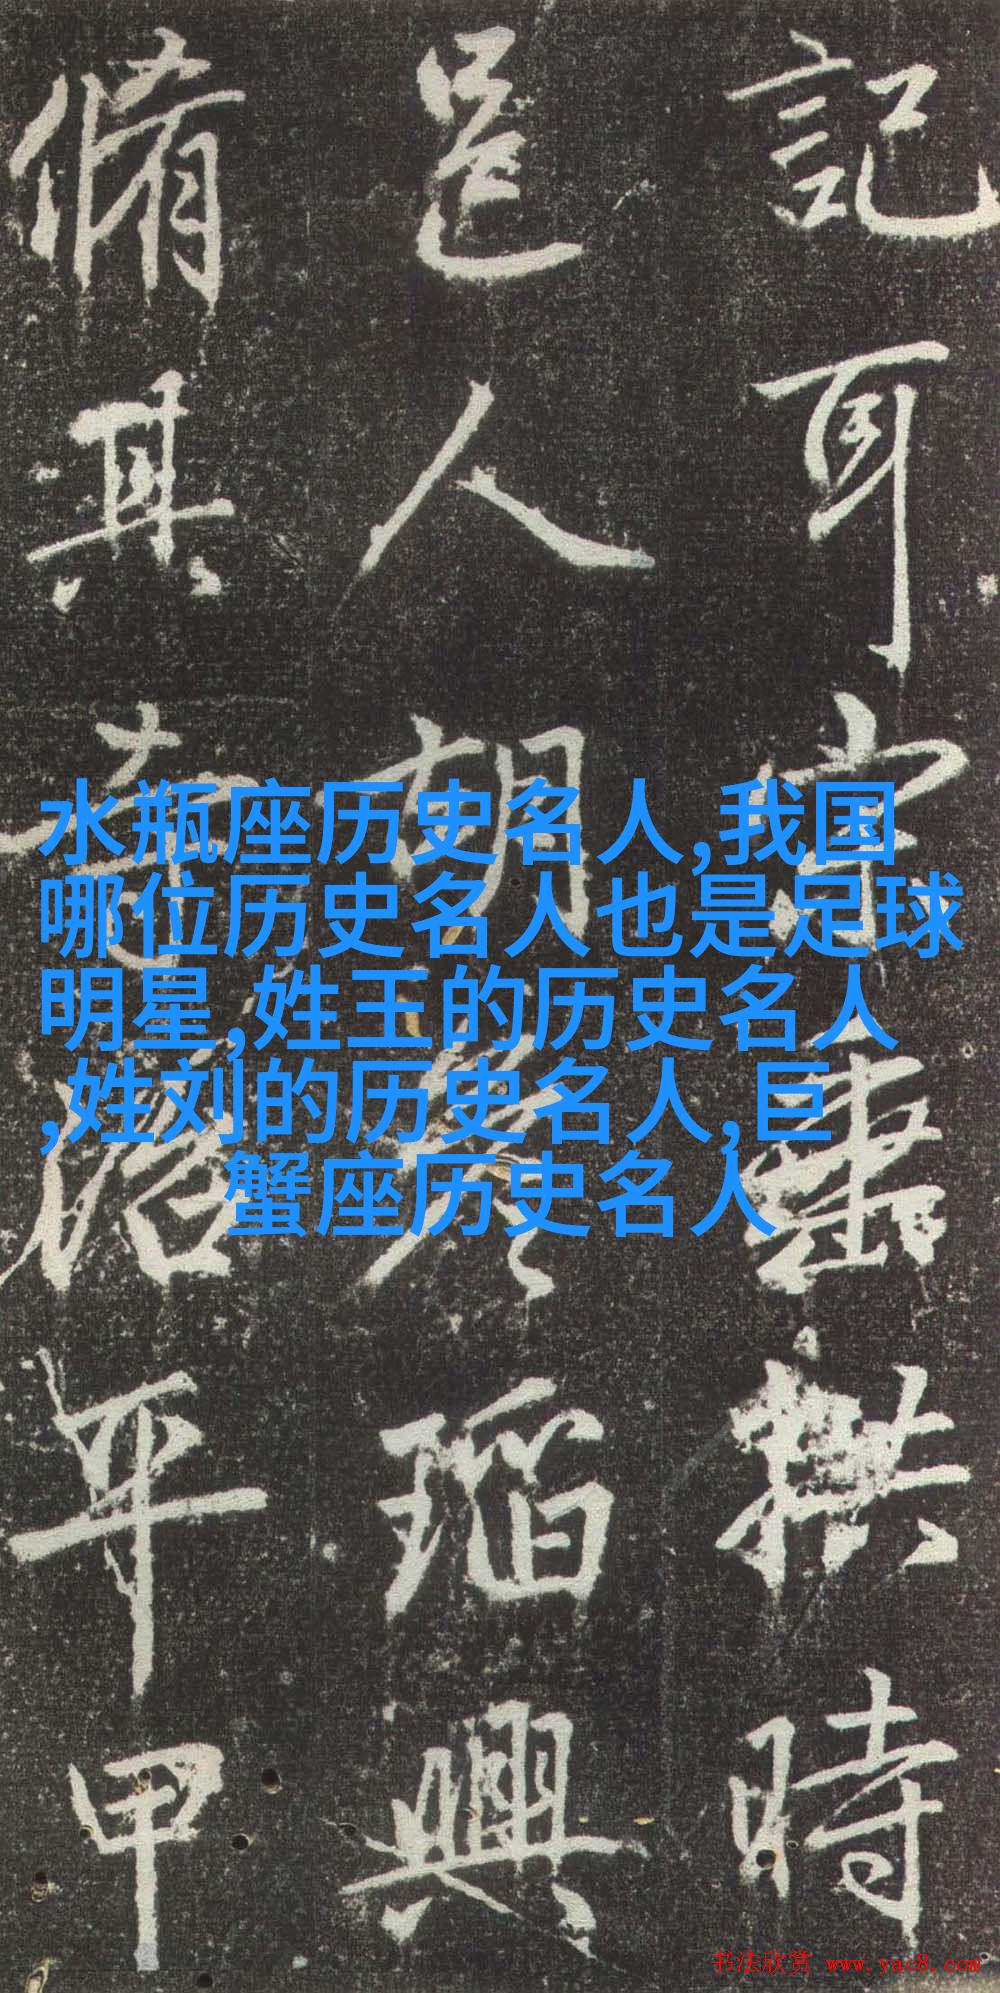 記耳宗壽拱時
邑人胡
瑫興
脩其寺治平甲
水瓶座历史名人,我国
哪位历史名人也是足球
明星,姓王的历史名人
,姓刘的历史名人,巨
蟹座历史名人
书法欣赏 www.yac8.com